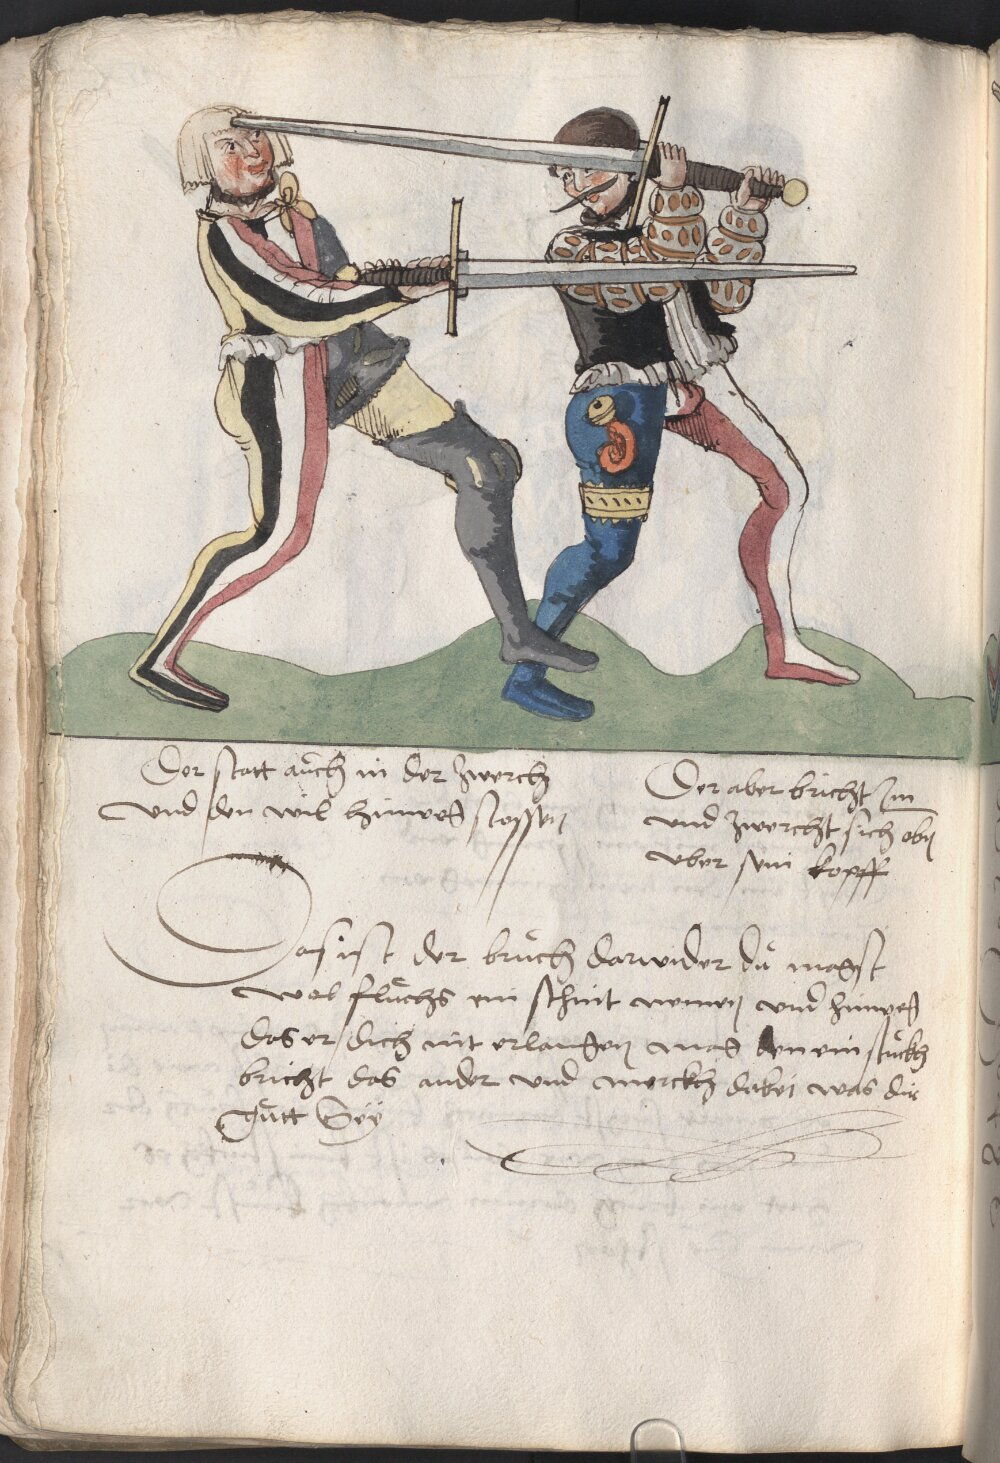 Der statt auch in der zwerch
und den wil hinweg stossen
Der aber bricht Im
und zwercht sich obn
uber sein kopff
Das ist der bruch darwider du magst
wol fluchs ein schnit nemen und hinweg
das er dich nit erlangen mag den ein stuckh
bricht das ander und merckh dabei was dir
gutt Sey